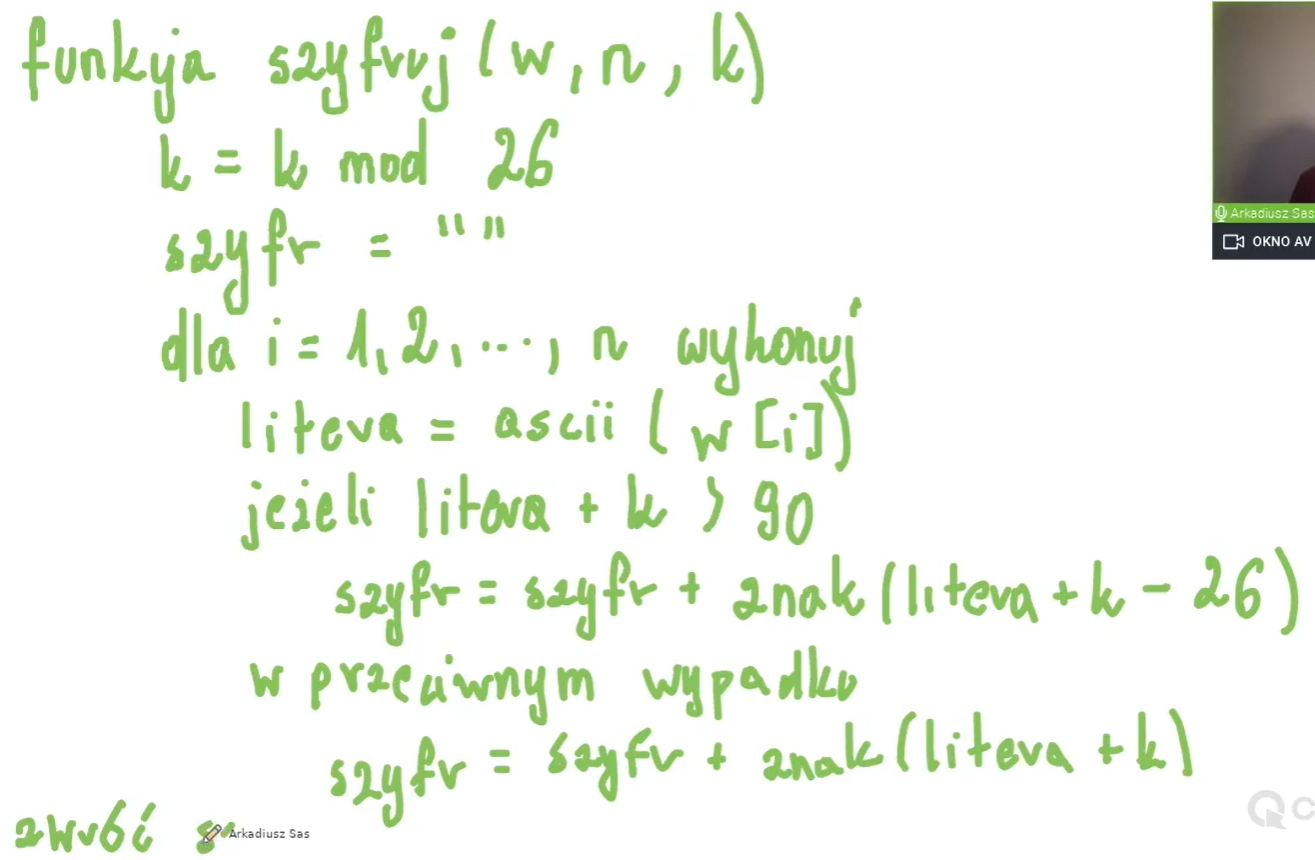 funkcja szyfruj (w, n, k)
k = k mod 26
szyfr = " "
dla i = 1, 2, ..., n wykonuj
litera = ascii (w [i])
jeżeli litera + k > 90
szyfr = szyfr + znak (litera + k - 26)
w przeciwnym wypadku
szyfr = szyfr + znak (litera + k)
zwróć
Arkadiusz Sas
Arkadiusz Sas
OKNO AV